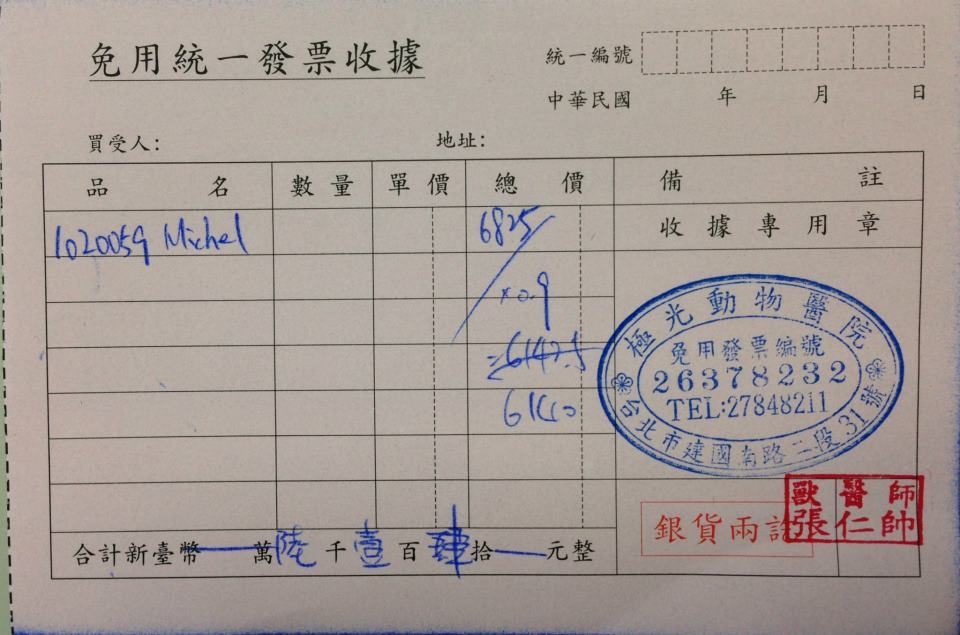 免用統一發票收據
統一編號
中華民國 年 月 日
買受人: 地址:
品名 數量 單價 總價 備註
1020059 Michel 6825 收據專用章
×0.9
=6142.5
6140
極光動物醫院
免用發票編號
26378232
TEL:27848211
台北市建國南路二段31號
獸醫師
張仁帥
銀貨兩訖
合計新臺幣—萬陸千壹百肆拾—元整